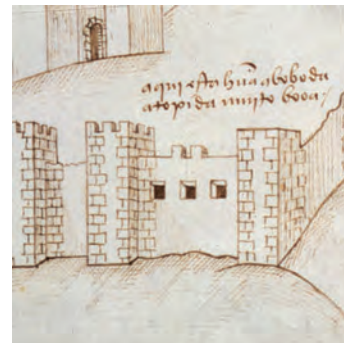 aqui esta hũa aboboda
atopida muito booa